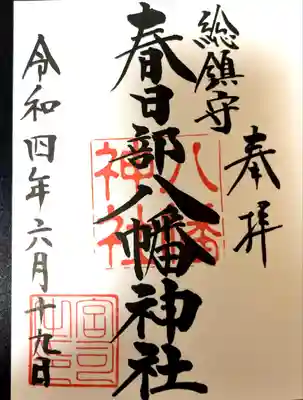 奉拝
総鎮守
春日部八幡神社
八幡神社
令和四年六月十九日